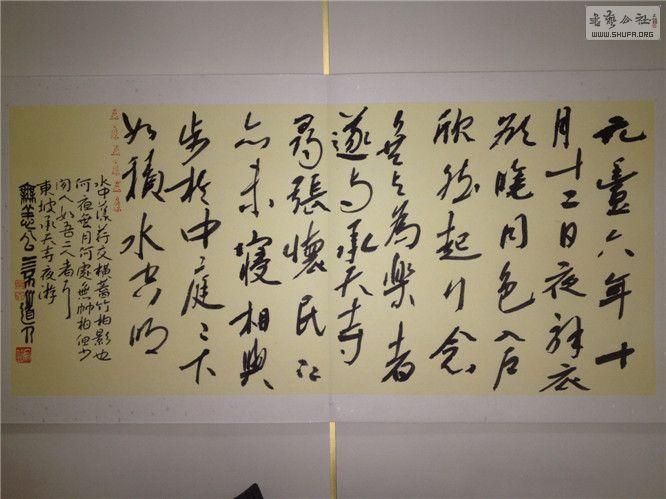 元豐六年十
月十二日夜解衣
欲睡月色入户
欣然起行念
無与為樂者
遂至承天寺
尋張懷民
亦未寢相與
步於中庭々下
如積水空明
水中藻荇交橫蓋竹柏影也
何夜無月何處無竹柏但少
闲人如吾二人者耳
東坡承天寺夜游
無恙公
書藝公社
WWW.SHUFA.ORG